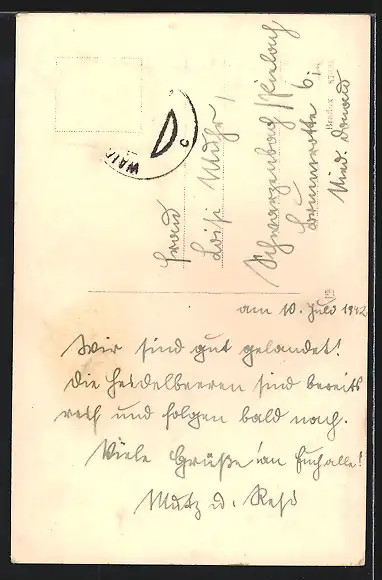 WAI
c
Frau
Loisi Muhr!
Schwarzenbach/Pielach
Brunnrotte 6.
Nied. Donau
am 10. Juli 1942
Wir sind gut gelandet!
Die Heidelbeeren sind bereits
reif und folgen bald nach.
Viele Grüße an Euch alle!
Mutz u. Resi